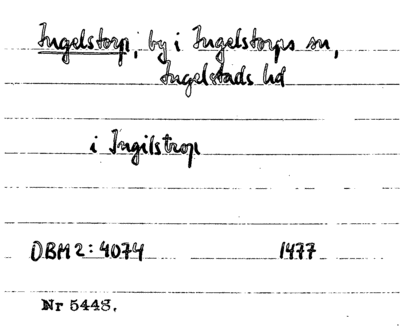 Ingelstorp, by i Ingelstorps sn,
Ingelstads hd
i Ingilstrop
DBM 2: 4074 1477
Nr 5448.